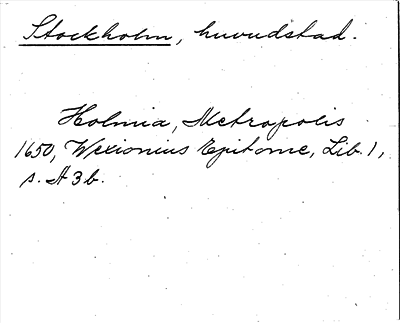 Stockholm, huvudstad.
Holmia, Metropolis
1650, Wexionius Epitome, Lib. 1,
s. A 3 b.